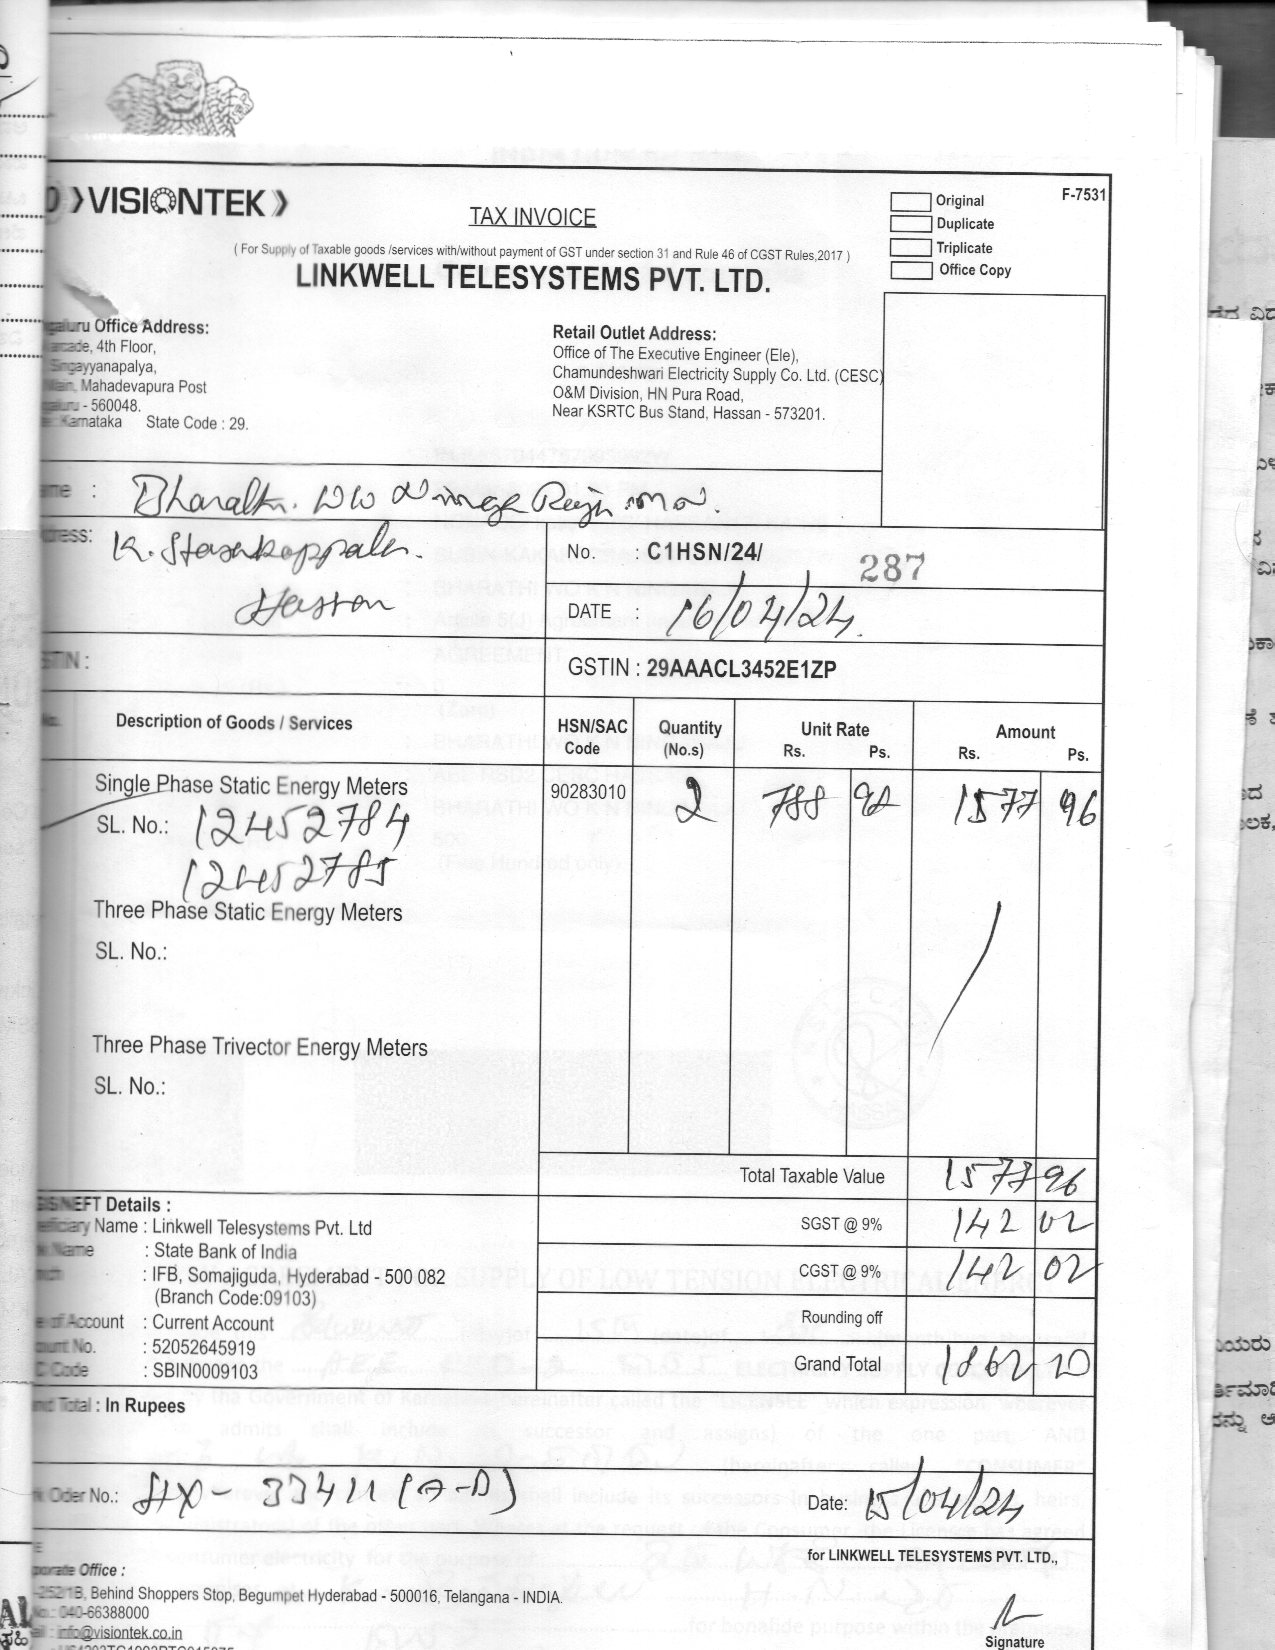 VISIONTEK
TAX INVOICE
Original
Duplicate
Triplicate
Office Copy
F-7531
( For Supply of Taxable goods /services with/without payment of GST under section 31 and Rule 46 of CGST Rules,2017 )
LINKWELL TELESYSTEMS PVT. LTD.
Office Address:
4th Floor,
Mahadevapura Post
- 560048.
Karnataka State Code : 29.
Retail Outlet Address:
Office of The Executive Engineer (Ele),
Chamundeshwari Electricity Supply Co. Ltd. (CESC)
O&M Division, HN Pura Road,
Near KSRTC Bus Stand, Hassan - 573201.
K.
Hassan
No. : C1HSN/24/ 287
DATE : 16/04/24.
GSTIN : 29AAACL3452E1ZP
Description of Goods / Services
HSN/SAC Code
Quantity (No.s)
Unit Rate Rs. Ps.
Amount Rs. Ps.
Single Phase Static Energy Meters 90283010 2 788 98 1577 96
SL. No.: 12452784
12452785
Three Phase Static Energy Meters
SL. No.:
Three Phase Trivector Energy Meters
SL. No.:
Total Taxable Value 1577 96
SGST @ 9% 142 02
CGST @ 9% 142 02
Rounding off
Grand Total 1862 20
NEFT Details :
Name : Linkwell Telesystems Pvt. Ltd
Name : State Bank of India
: IFB, Somajiguda, Hyderabad - 500 082
(Branch Code:09103)
of Account : Current Account
No. : 52052645919
Code : SBIN0009103
Total : In Rupees
Oder No.: HX - 33411 (A-D)
Date: 15/04/24
for LINKWELL TELESYSTEMS PVT. LTD.,
Office :
Behind Shoppers Stop, Begumpet Hyderabad - 500016, Telangana - INDIA.
040-66388000
info@visiontek.co.in
Signature